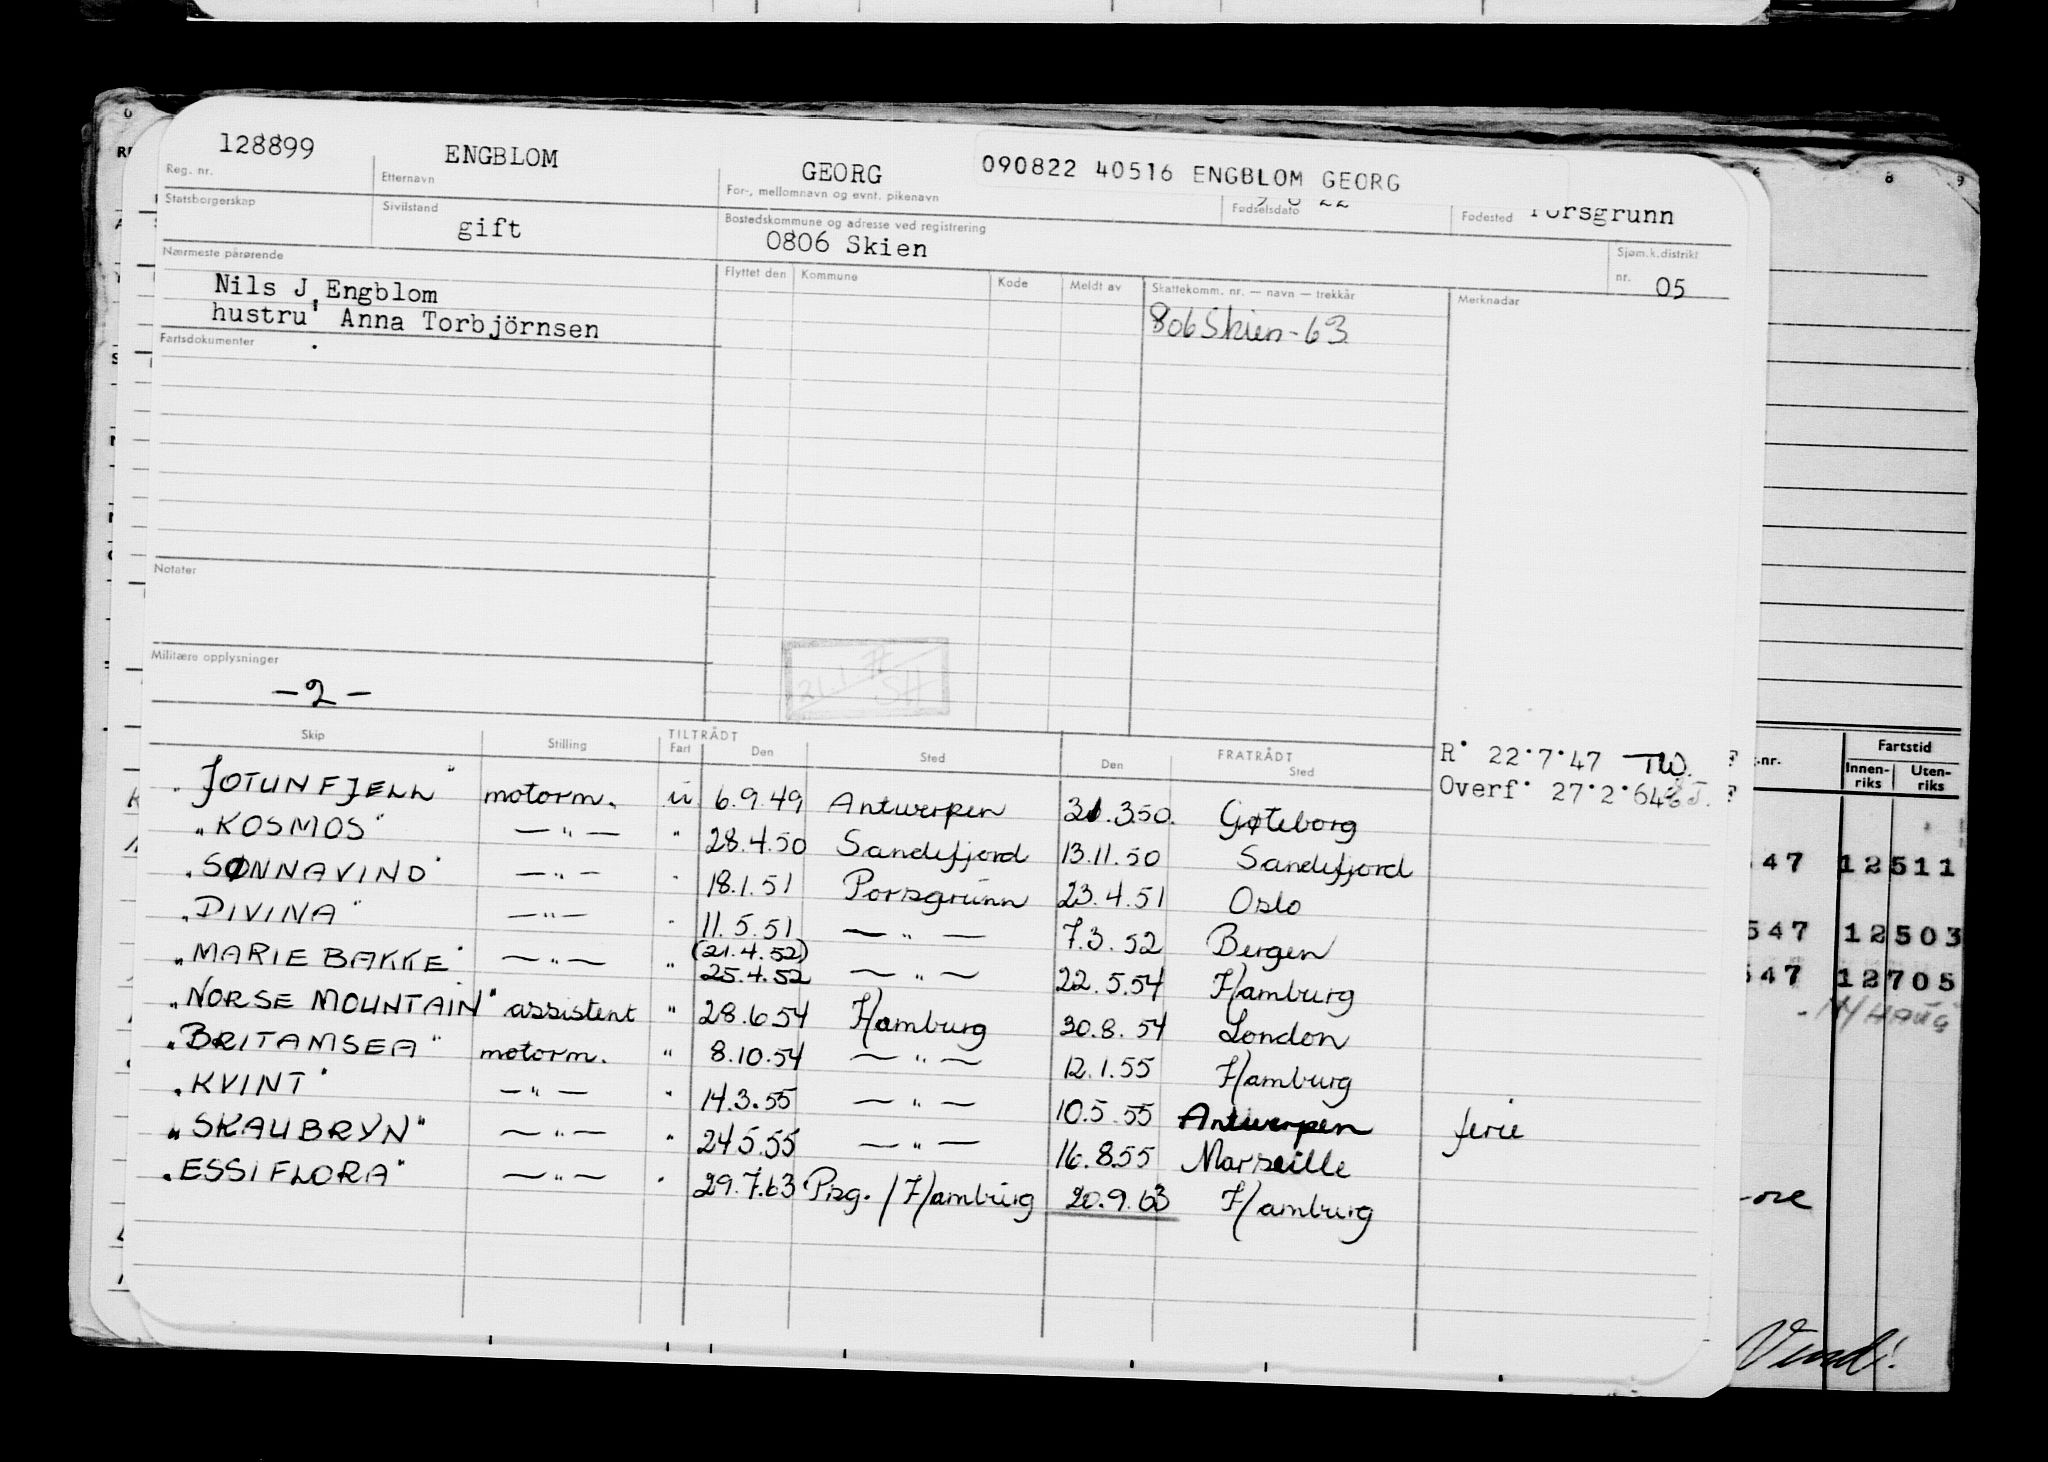 128899 ENGBLOM GEORG 090822 40516 ENGBLOM GEORG
Reg. nr. Etternavn For-, mellomnavn og evnt. pikenavn Fødselsdato Fødested Porsgrunn
Statsborgerskap Sivilstand gift Bostedskommune og adresse ved registrering 0806 Skien
Sjøm.k.distrikt nr. 05
Nærmeste pårørende Flyttet den Kommune Kode Meldt av Skattekomm. nr. — navn — trekkår Merknader
Nils J Engblom 806 Skien - 63
hustru Anna Torbjörnsen
Fartsdokumenter
Notater
Militære opplysninger
- 2 -
Skip Stilling TILTRÅDT Fart Den Sted FRATRÅDT Den Sted
R. 22.7.47 TW.
Overf. 27.2.64
"JOTUNFJELL" motorm. u 6.9.49 Antwerpen 31.3.50. Gøteborg
"KOSMOS" — " — " 28.4.50 Sandefjord 13.11.50 Sandefjord
"SØNNAVIND" — " — " 18.1.51 Porsgrunn 23.4.51 Oslo
"DIVINA" — " — " 11.5.51 — " — 7.3.52 Bergen
"MARIE BAKKE" — " — " (21.4.52) 25.4.52 — " — 22.5.54 Hamburg
"NORSE MOUNTAIN" assistent " 28.6.54 Hamburg 30.8.54 London
"BRITAMSEA" motorm. " 8.10.54 — " — 12.1.55 Hamburg
"KVINT" — " — " 14.3.55 — " — 10.5.55 Antwerpen ferie
"SKAUBRYN" — " — " 24.5.55 — " — 16.8.55 Marseille
"ESSI FLORA" — " — " 29.7.63 Prsg. / Hamburg 20.9.63 Hamburg
Fartstid
Innen-riks Uten-riks
47 12511
547 12503
547 12705
Vend!